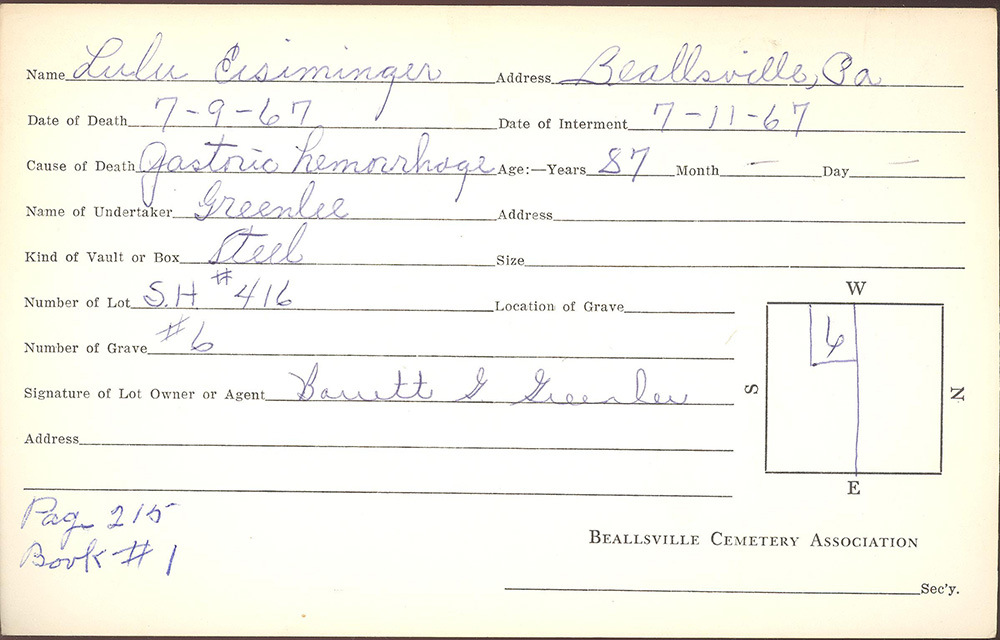 Name Lulu Eisiminger Address Beallsville, Pa
Date of Death 7-9-67 Date of Interment 7-11-67
Cause of Death Gastoric hemorrhage Age:—Years 87 Month — Day —
Name of Undertaker Greenlee Address
Kind of Vault or Box Steel Size
Number of Lot S.H #416 Location of Grave
Number of Grave #6
Signature of Lot Owner or Agent G Greenlee
Address
W
6
S N
E
Page 215
Book #1
BEALLSVILLE CEMETERY ASSOCIATION
Sec'y.